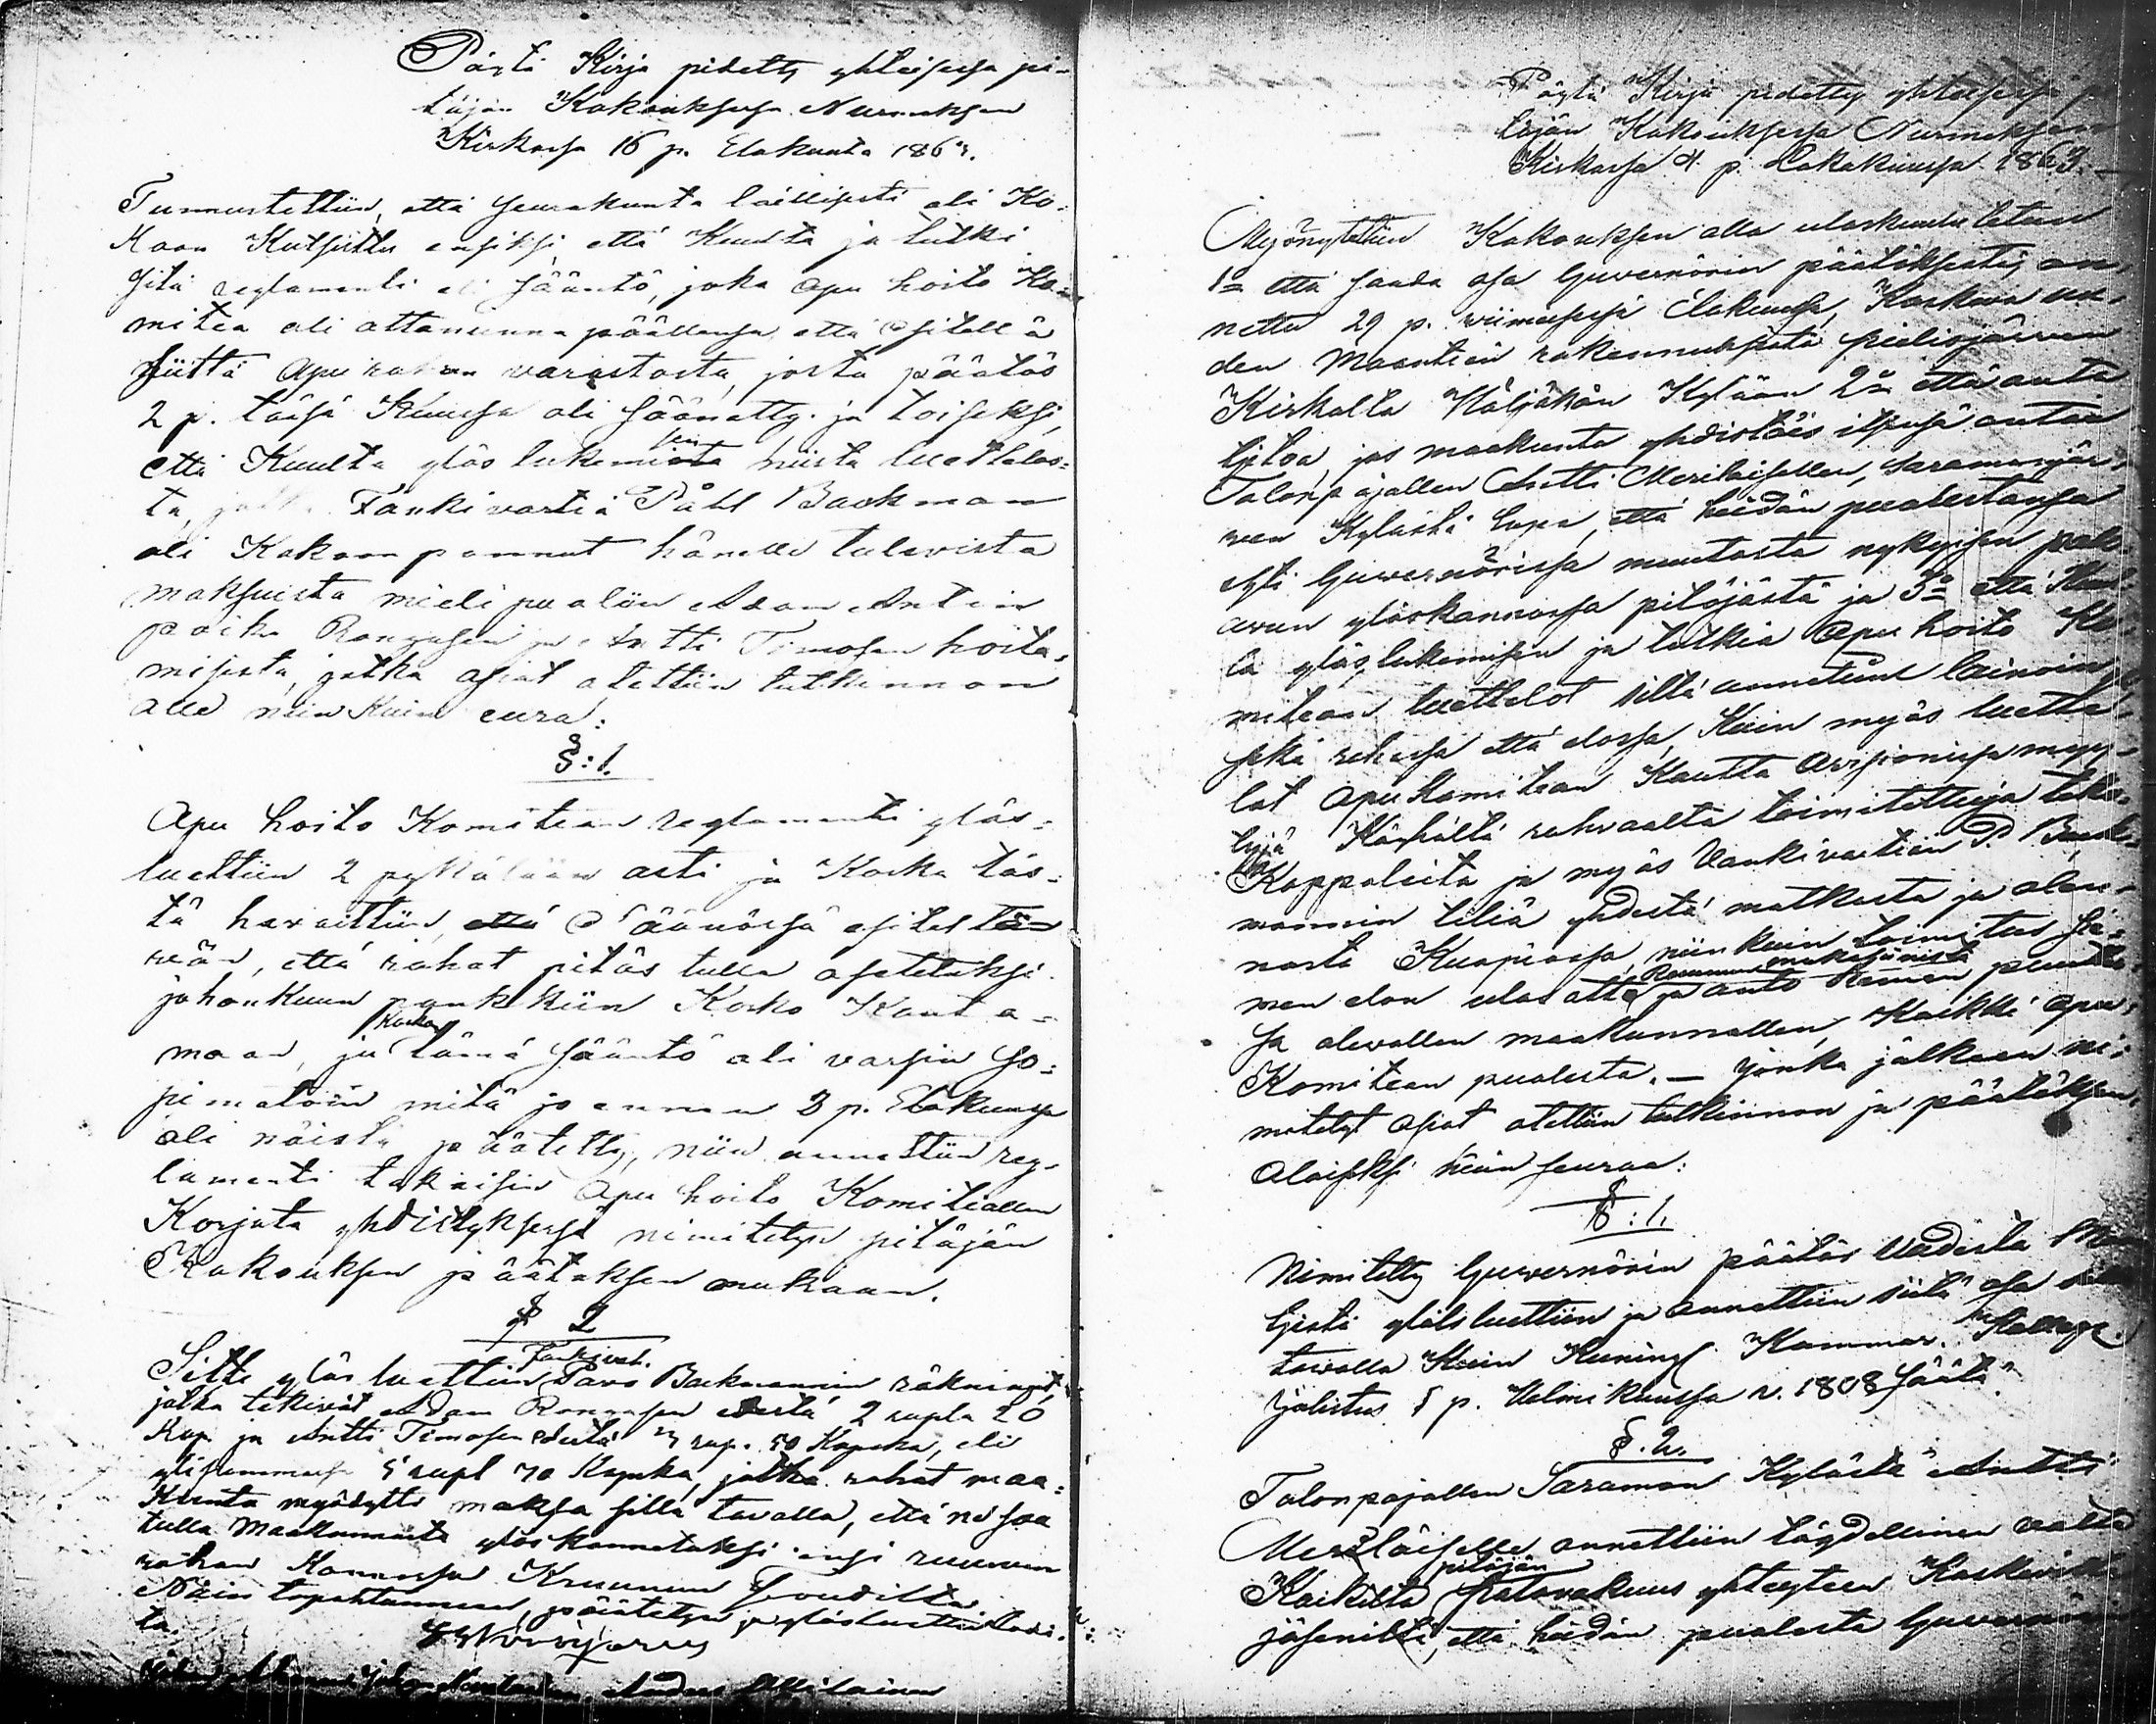 Pöytä Kirja pidetty yhteisesä pi-
täjän Kokouksesa Nurmeksen
Kirkosa 16 p. Elokuuta 1863.
Tunnustettiin, että seurakunta laillisesti oli Ko-
Koon Kutsuttu ensiksi että Kuulla ja tutki
sitä reglamenti eli sääntö, joka Apu hoito Ko-
mitea oli ottanunna päällensä, että esitellä
siittä Apu rahan varastosta, josta päätös
2 p. täsä Kuussa oli säänätty. ja toiseksi,
että Kuulla ylös lukemisen niistä luettelos-
ta, jotka Fankivartia Påhl Backman
oli Kokoon pannut hänelle tulevista
maksuista mieli puoliin Adam Antin
poika Rongasen ja Antti Timosen hoita-
misesta, jotka asiat otettiin tutkinnon
alle niin Kuin eura:
§: 1.
Apu hoito Komitean reglamenti ylös-
luettiin 2 pykälään asti ja Koska täs-
tä havaittiin, että säänösä esiteltä-
vän, että rahat pitäs tulla asetetuksi
johonkuun pankkiin Korko Kanta-
maan, ja Koska tämä sääntö oli varsin so-
pimatoin mitä jo ennen 2 p. Elokuusa
oli näistä päätetty, niin annettiin reg-
lamenti takaisin Apu hoito Komiteallen
Korjata yhdistyksesä nimitetyn pitäjän
Kokouksen päätöksen mukaan.
§ 2
Sitte ylös luettiin Fankivah. Pavo Backmannin räkningit,
jotka tekivät Adam Rongasen edestä 2 rupla 20
Kop. ja Antti Timosen edestä 3 rup. 50 Kopeka, eli
ylisummassa 5 rupl 70 Kopeka, jotka rahat maa-
Kunta myödytti maksa sillä tavalla, että ne saa
tulla Maakunnasta ylöskannetuksi ensi ruunun
rahan Kannossa Kruunun Foudilta.
Näin tapahtunneen, päätetyn ja ylösluettu todis-
ta.
Pöytä Kirja pidetty yhteisesä pi-
täjän Kokouksesa Nurmeksen
Kirkosa 4 p. Lokakuussa 1863.
Myönytettiin Kokouksen olla uloskuulutetun
1:o että saada osa Guvernörin päätöksestä an-
nettu 29 p. viimeisesä Elokuusa, Koskeva uu-
den Maantien rakennuksesta Pielisjärven
Kirkolta Höljäkän Kylään 2:o että anta
tietoa, jos maakunta yhdistäis itsensä antaa
Talonpojallen Antti Meriläisellen, Saramanjär-
ven Kylästä lupa, että heidän puolestansa
etsi Guvernörisa muutosta nykyisen palo
avun ylöskannossa pitäjästä ja 3:o että Kuul-
la ylös lukemisen ja tutkia Apu hoito Ko-
mitean luettelot siltä annetuut lainoin
sekä rahassa että elossa, Kuin myös luette-
lot Apu Komitean Kautta Avisionisa myy-
tyjä Köyhältä rahvaalta toimitettuja teko-
Kappaleita ja myös Vankivartian P. Back-
mannin tiliä yhdestä matkasta ja olen-
nosta Kuopiossa niinkuin toimitus sie-
men elon ulos otto Ruunun makasiinista ja anto siemen puuttu-
sa olevallen maakunnallen, Kaikki Apu
Komitean puolesta. — jonka jälkeen ni-
mitetyt Asiat otettiin tutkinnon ja päätöksen
Alaiseksi kuin seuraa:
§: 1.
Nimitetty Guvernörin päätös Uudesta Maan
tiestä ylösluettiin ja annettiin siitä osa sillä
tavalla Kuin Kuningl. Kammar. Kollegi.
Julistus 5 p. Helmikuussa v. 1808 säätä.
§. 2.
Talonpojallen Saraman Kylästä Antti
Meriläiselle annettiin täydellinen valta
Kaikilta pitäjän Palovakuus yhteyteen Koskeville
jäsenilti, että heidän puolesta Guvernöri